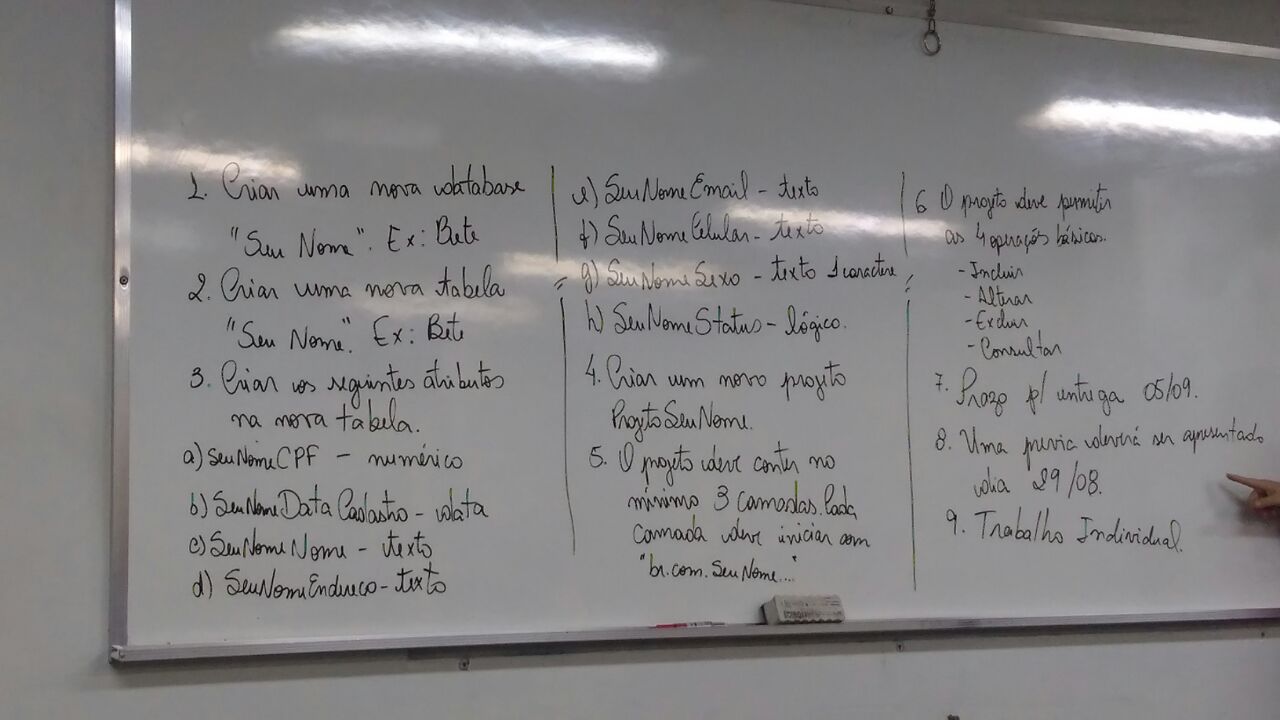 1. Criar uma nova database
"Seu Nome". Ex: Bete
2. Criar uma nova tabela
"Seu Nome". Ex: Bete
3. Criar os seguintes atributos
na nova tabela.
a) SeuNomeCPF - numérico
b) SeuNomeDataCadastro - data
c) SeuNomeNome - texto
d) SeuNomeEndereco - texto
e) SeuNomeEmail - texto
f) SeuNomeCelular - texto
g) SeuNomeSexo - texto 1 caractere
h) SeuNomeStatus - lógico.
4. Criar um novo projeto
ProjetoSeuNome.
5. O projeto deve conter no
mínimo 3 camadas. Cada
camada deve iniciar com
"br.com.SeuNome...."
6 O projeto deve permitir
as 4 operações básicas.
- Incluir
- Alterar
- Excluir
- Consultar
7. Prazo p/ entrega 05/09.
8. Uma previa deverá ser apresentado
dia 29/08.
9. Trabalho Individual.